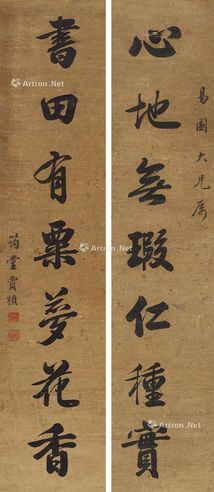 心地無瑕仁種實
易園大兄屬
書田有粟夢花香
筠堂賈楨
Artron.Net
Artron.Net
Artron.Net
Artron.Net
Artron.Net
Artron.Net